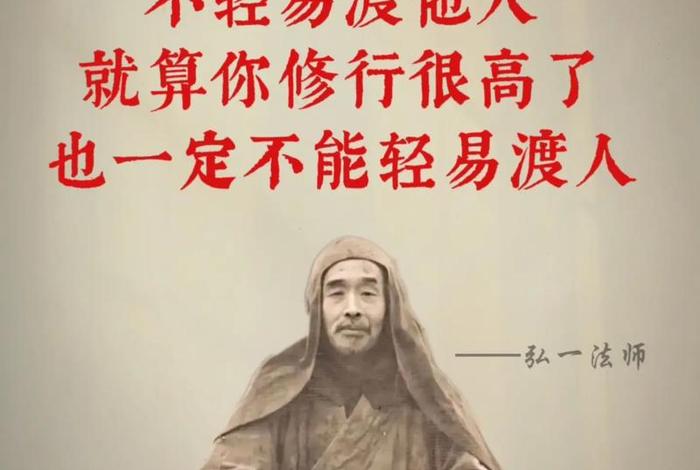 不轻易渡他人
就算你修行很高了
也一定不能轻易渡人
——弘一法师